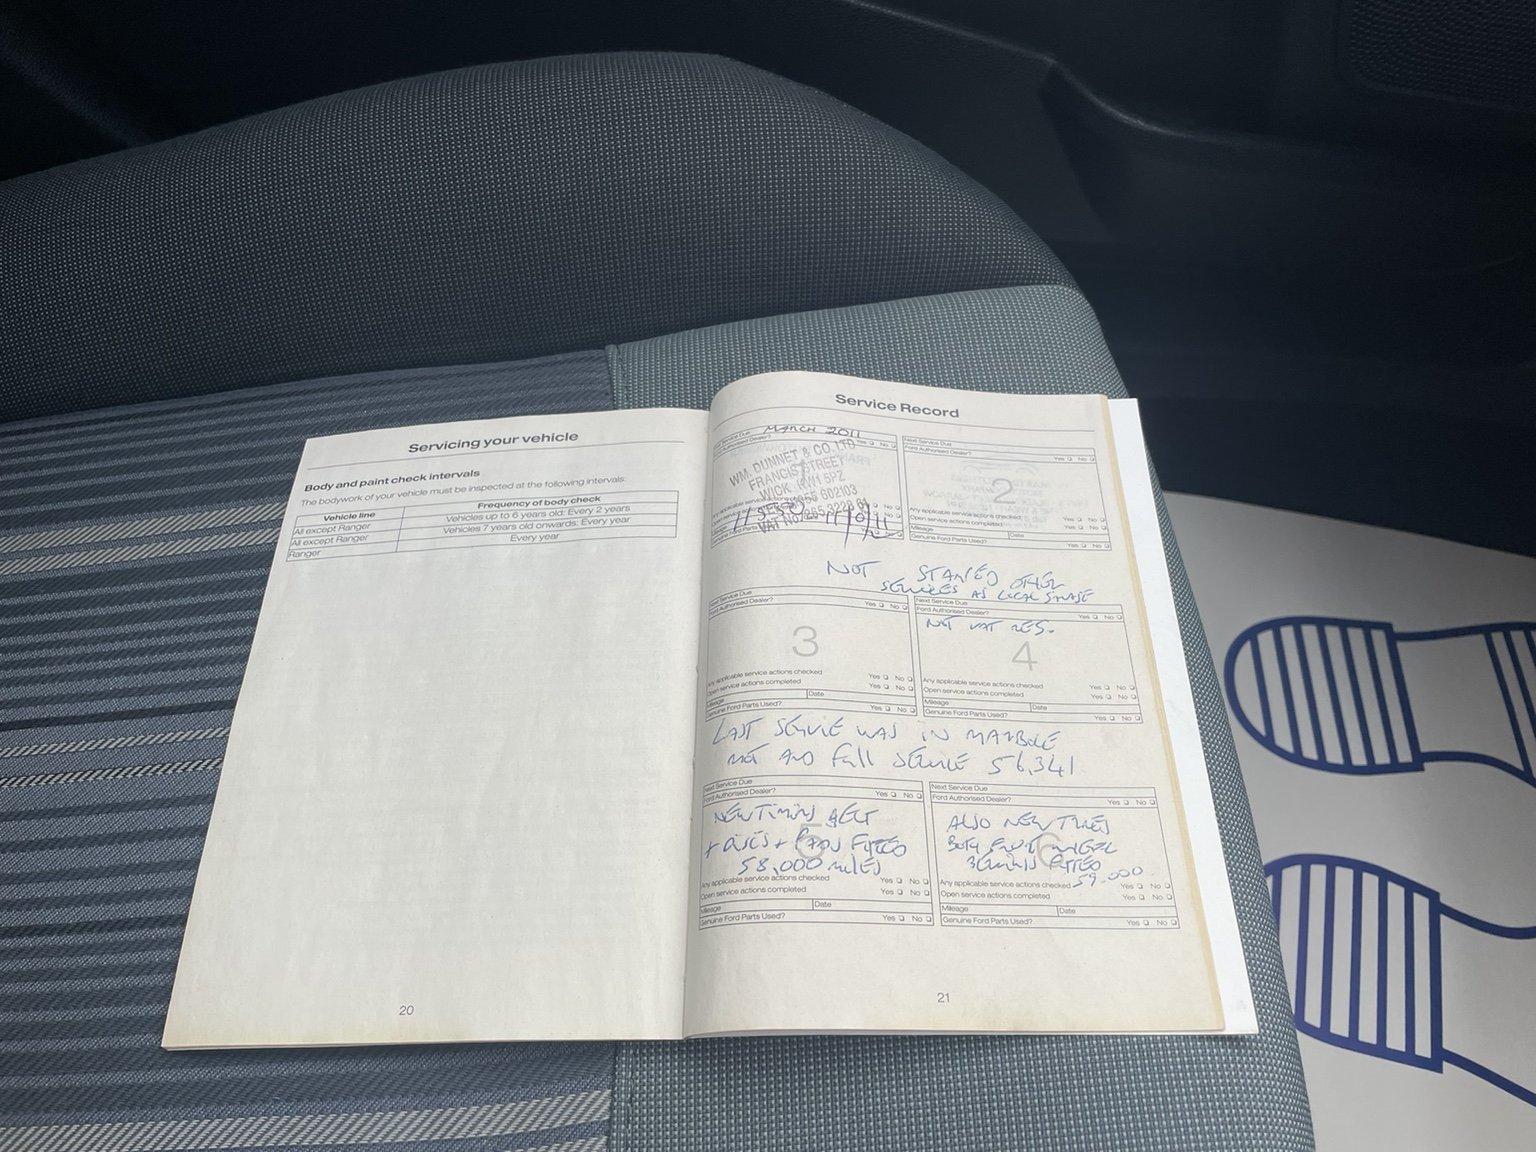 Servicing your vehicle
Body and paint check intervals
The bodywork of your vehicle must be inspected at the following intervals:
Vehicle line Frequency of body check
All except Ranger Vehicles up to 6 years old: Every 2 years
All except Ranger Vehicles 7 years old onwards: Every year
Ranger Every year
20
Service Record
Next Service Due MARCH 2011
Ford Authorised Dealer? Yes No
WM. DUNNET & CO. LTD
FRANCIS STREET
WICK. KW1 5PZ
602103
VAT No. 265 3228 61
Next Service Due
Ford Authorised Dealer? Yes No
2
Any applicable service actions checked Yes No
Open service actions completed Yes No
Mileage Date
Genuine Ford Parts Used? Yes No
NOT STAMPED OTHER
SERVICES AS LOCAL
NOT VAT REG.
Next Service Due
Ford Authorised Dealer? Yes No
3
Any applicable service actions checked Yes No
Open service actions completed Yes No
Mileage Date
Genuine Ford Parts Used? Yes No
Next Service Due
Ford Authorised Dealer? Yes No
4
Any applicable service actions checked Yes No
Open service actions completed Yes No
Mileage Date
Genuine Ford Parts Used? Yes No
LAST SERVICE WAS IN
MOT AND Full SERVICE 56,341
Next Service Due
Ford Authorised Dealer? Yes No
5
NEW TIMING BELT
+ DISCS + PADS FITTED
58,000 MILES
Any applicable service actions checked Yes No
Open service actions completed Yes No
Mileage Date
Genuine Ford Parts Used? Yes No
Next Service Due
Ford Authorised Dealer? Yes No
6
ALSO NEW TYRES
BOTH FRONT WHEEL
BEARINGS FITTED
59.000
Any applicable service actions checked Yes No
Open service actions completed Yes No
Mileage Date
Genuine Ford Parts Used? Yes No
21